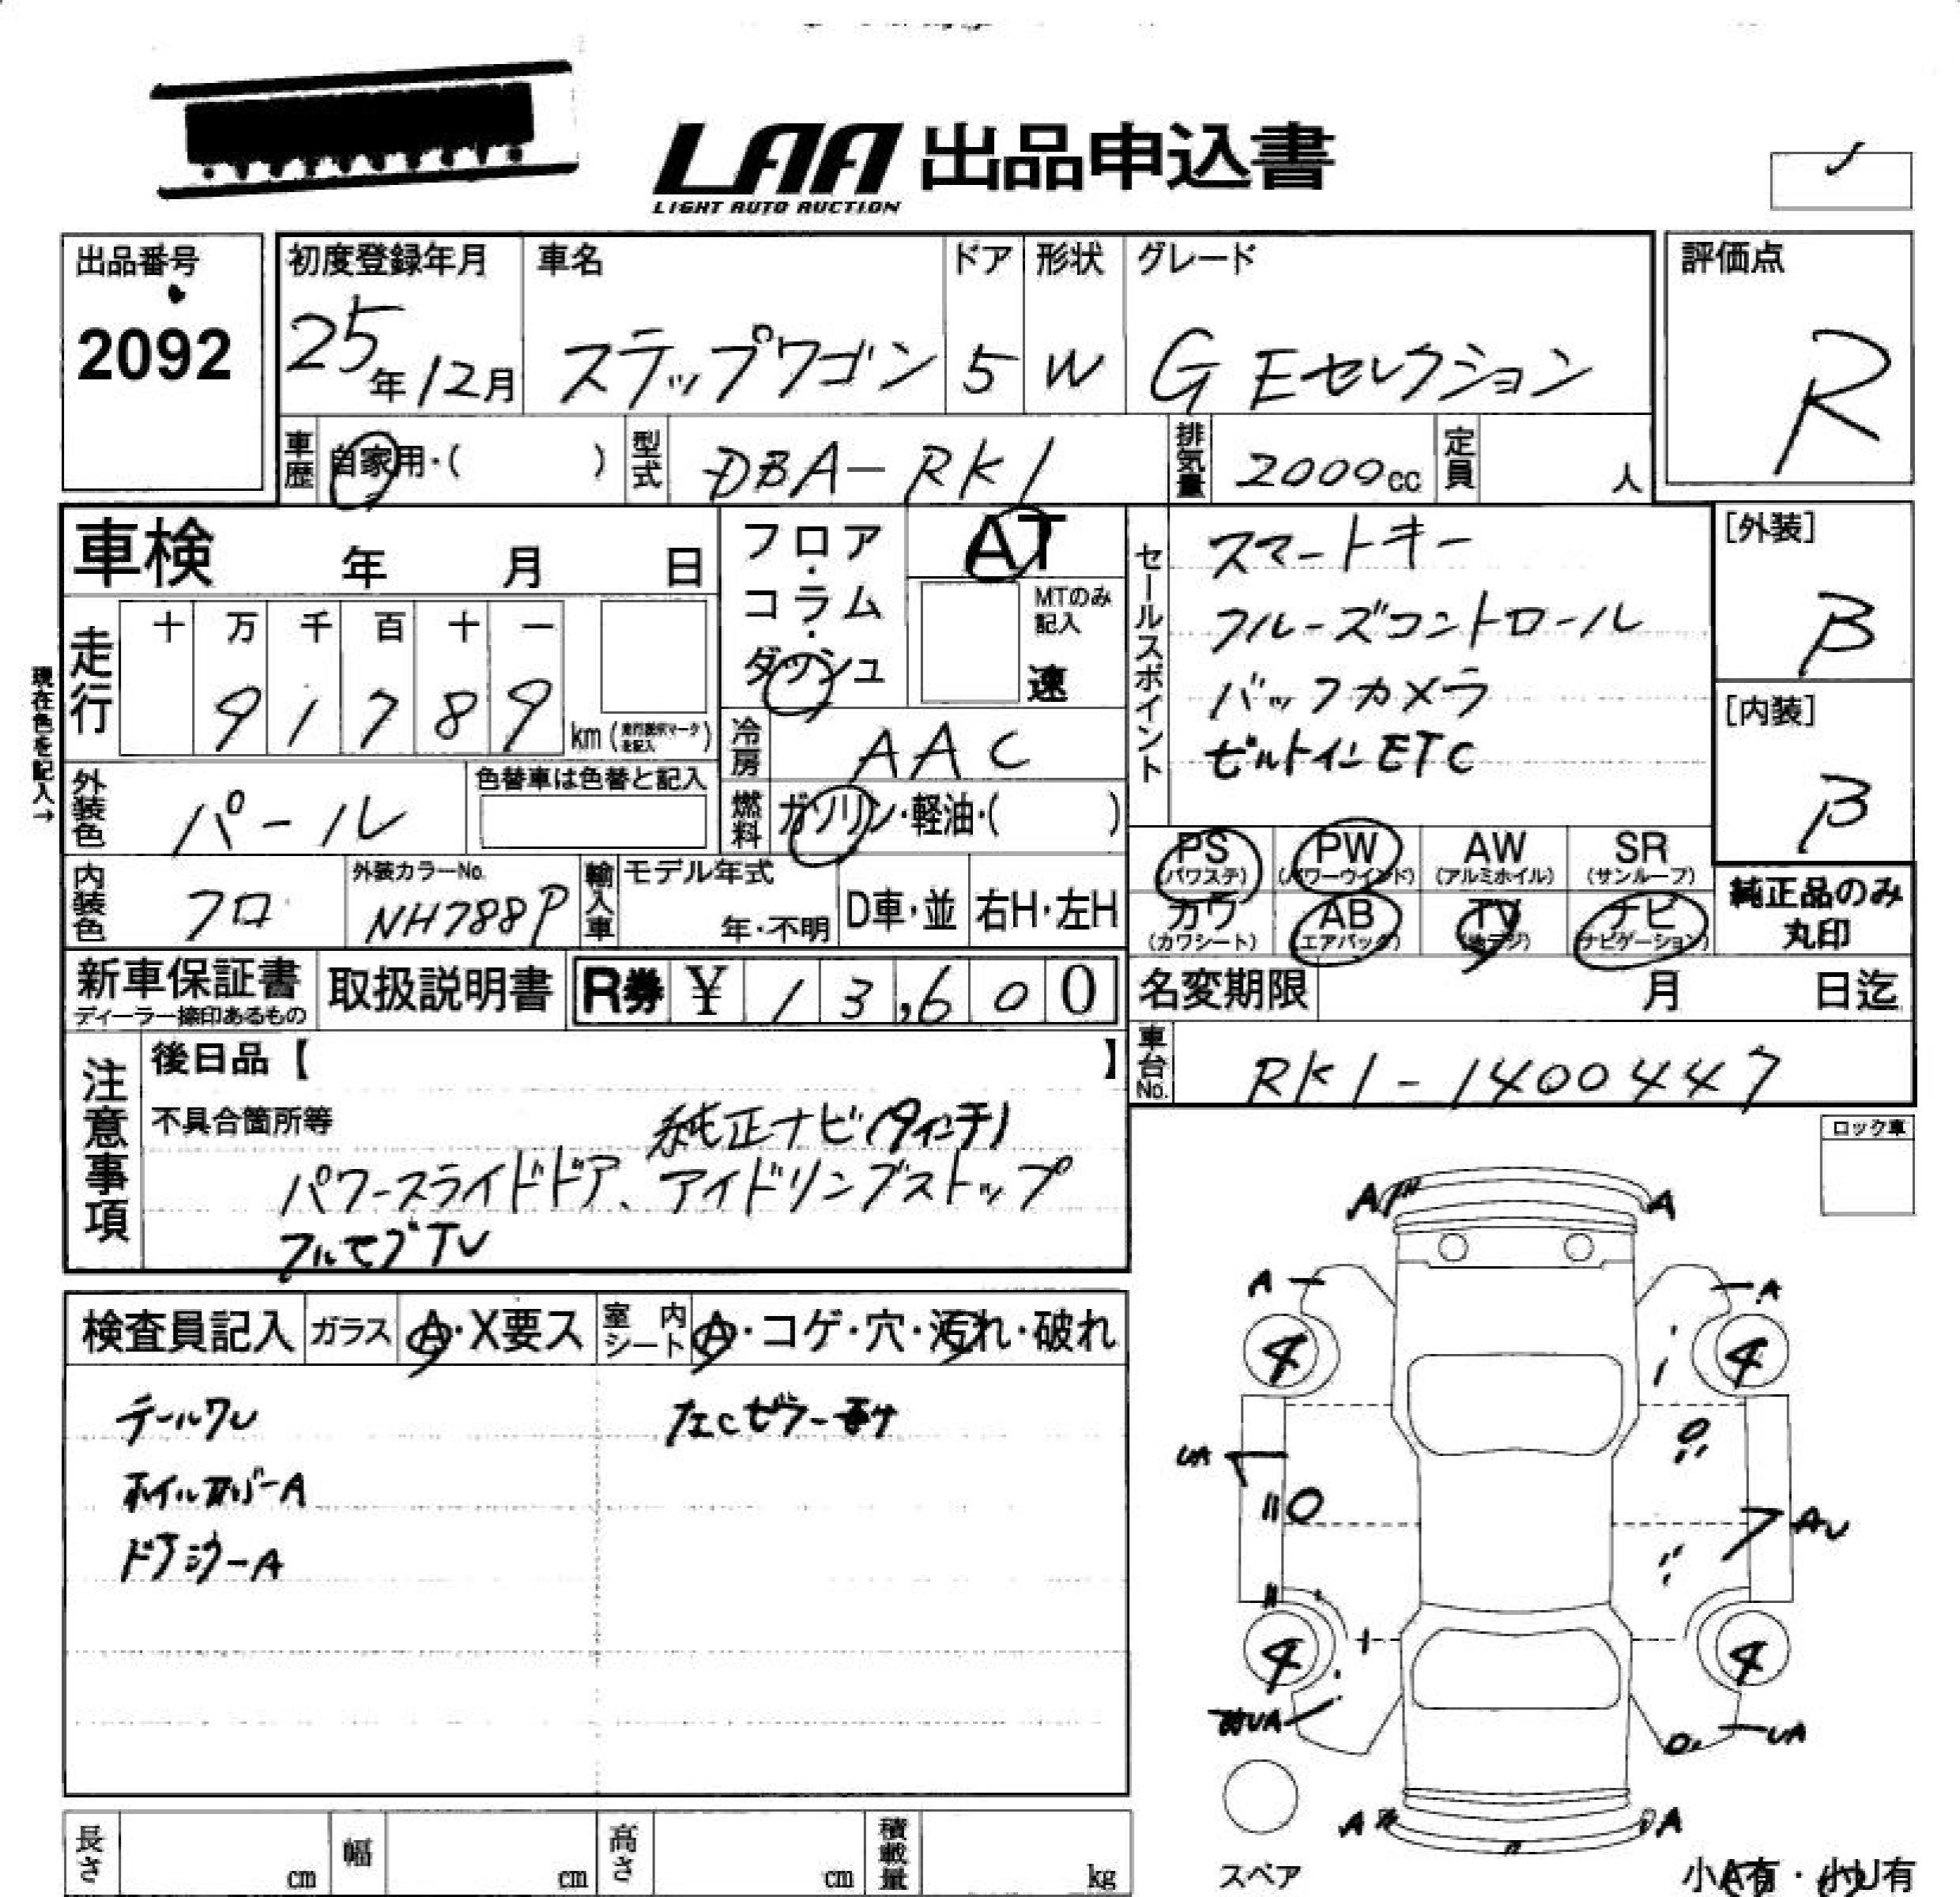 LAA 出品申込書
LIGHT AUTO AUCTION
出品番号
2092
初度登録年月
25年12月
車名
ステップワゴン
ドア
5
形状
W
グレード
G Eセレクション
評価点
R
車歴
自家用・( )
型式
DBA-RK1
排気量
2000cc
定員
人
車検 年 月 日
走行
十 万 千 百 十 一
9 1 7 8 9
km
現在色を記入→
フロア・コラム・ダッシュ
AT
MTのみ記入
速
冷房
AAC
燃料
ガソリン・軽油・( )
外装色
パール
色替車は色替と記入
内装色
クロ
外装カラーNo.
NH788P
輸入車
モデル年式
年・不明
D車・並
右H・左H
セールスポイント
スマートキー
クルーズコントロール
バックカメラ
ビルトインETC
[外装]
B
[内装]
B
PS
(パワステ)
PW
(パワーウインド)
AW
(アルミホイル)
SR
(サンルーフ)
カワ
(カワシート)
AB
(エアバック)
TV
(地デジ)
ナビ
(ナビゲーション)
純正品のみ
丸印
新車保証書
ディーラー捺印あるもの
取扱説明書
R券 ¥ 13,600
名変期限 月 日迄
車台No.
RK1-1400447
注意事項
後日品【 】
不具合箇所等
純正ナビ(9インチ)
パワースライドドア、アイドリングストップ
フルセグTV
ロック車
検査員記入
ガラス
A・X要ス
室内シート
A・コゲ・穴・汚れ・破れ
テールワレ
ホイルカバーA
ドアミラーA
A A
A A
4 4
UA
AU
4 4
UA
UA
A A
スペア
小A有・小U有
長さ cm
幅 cm
高さ cm
積載量 kg